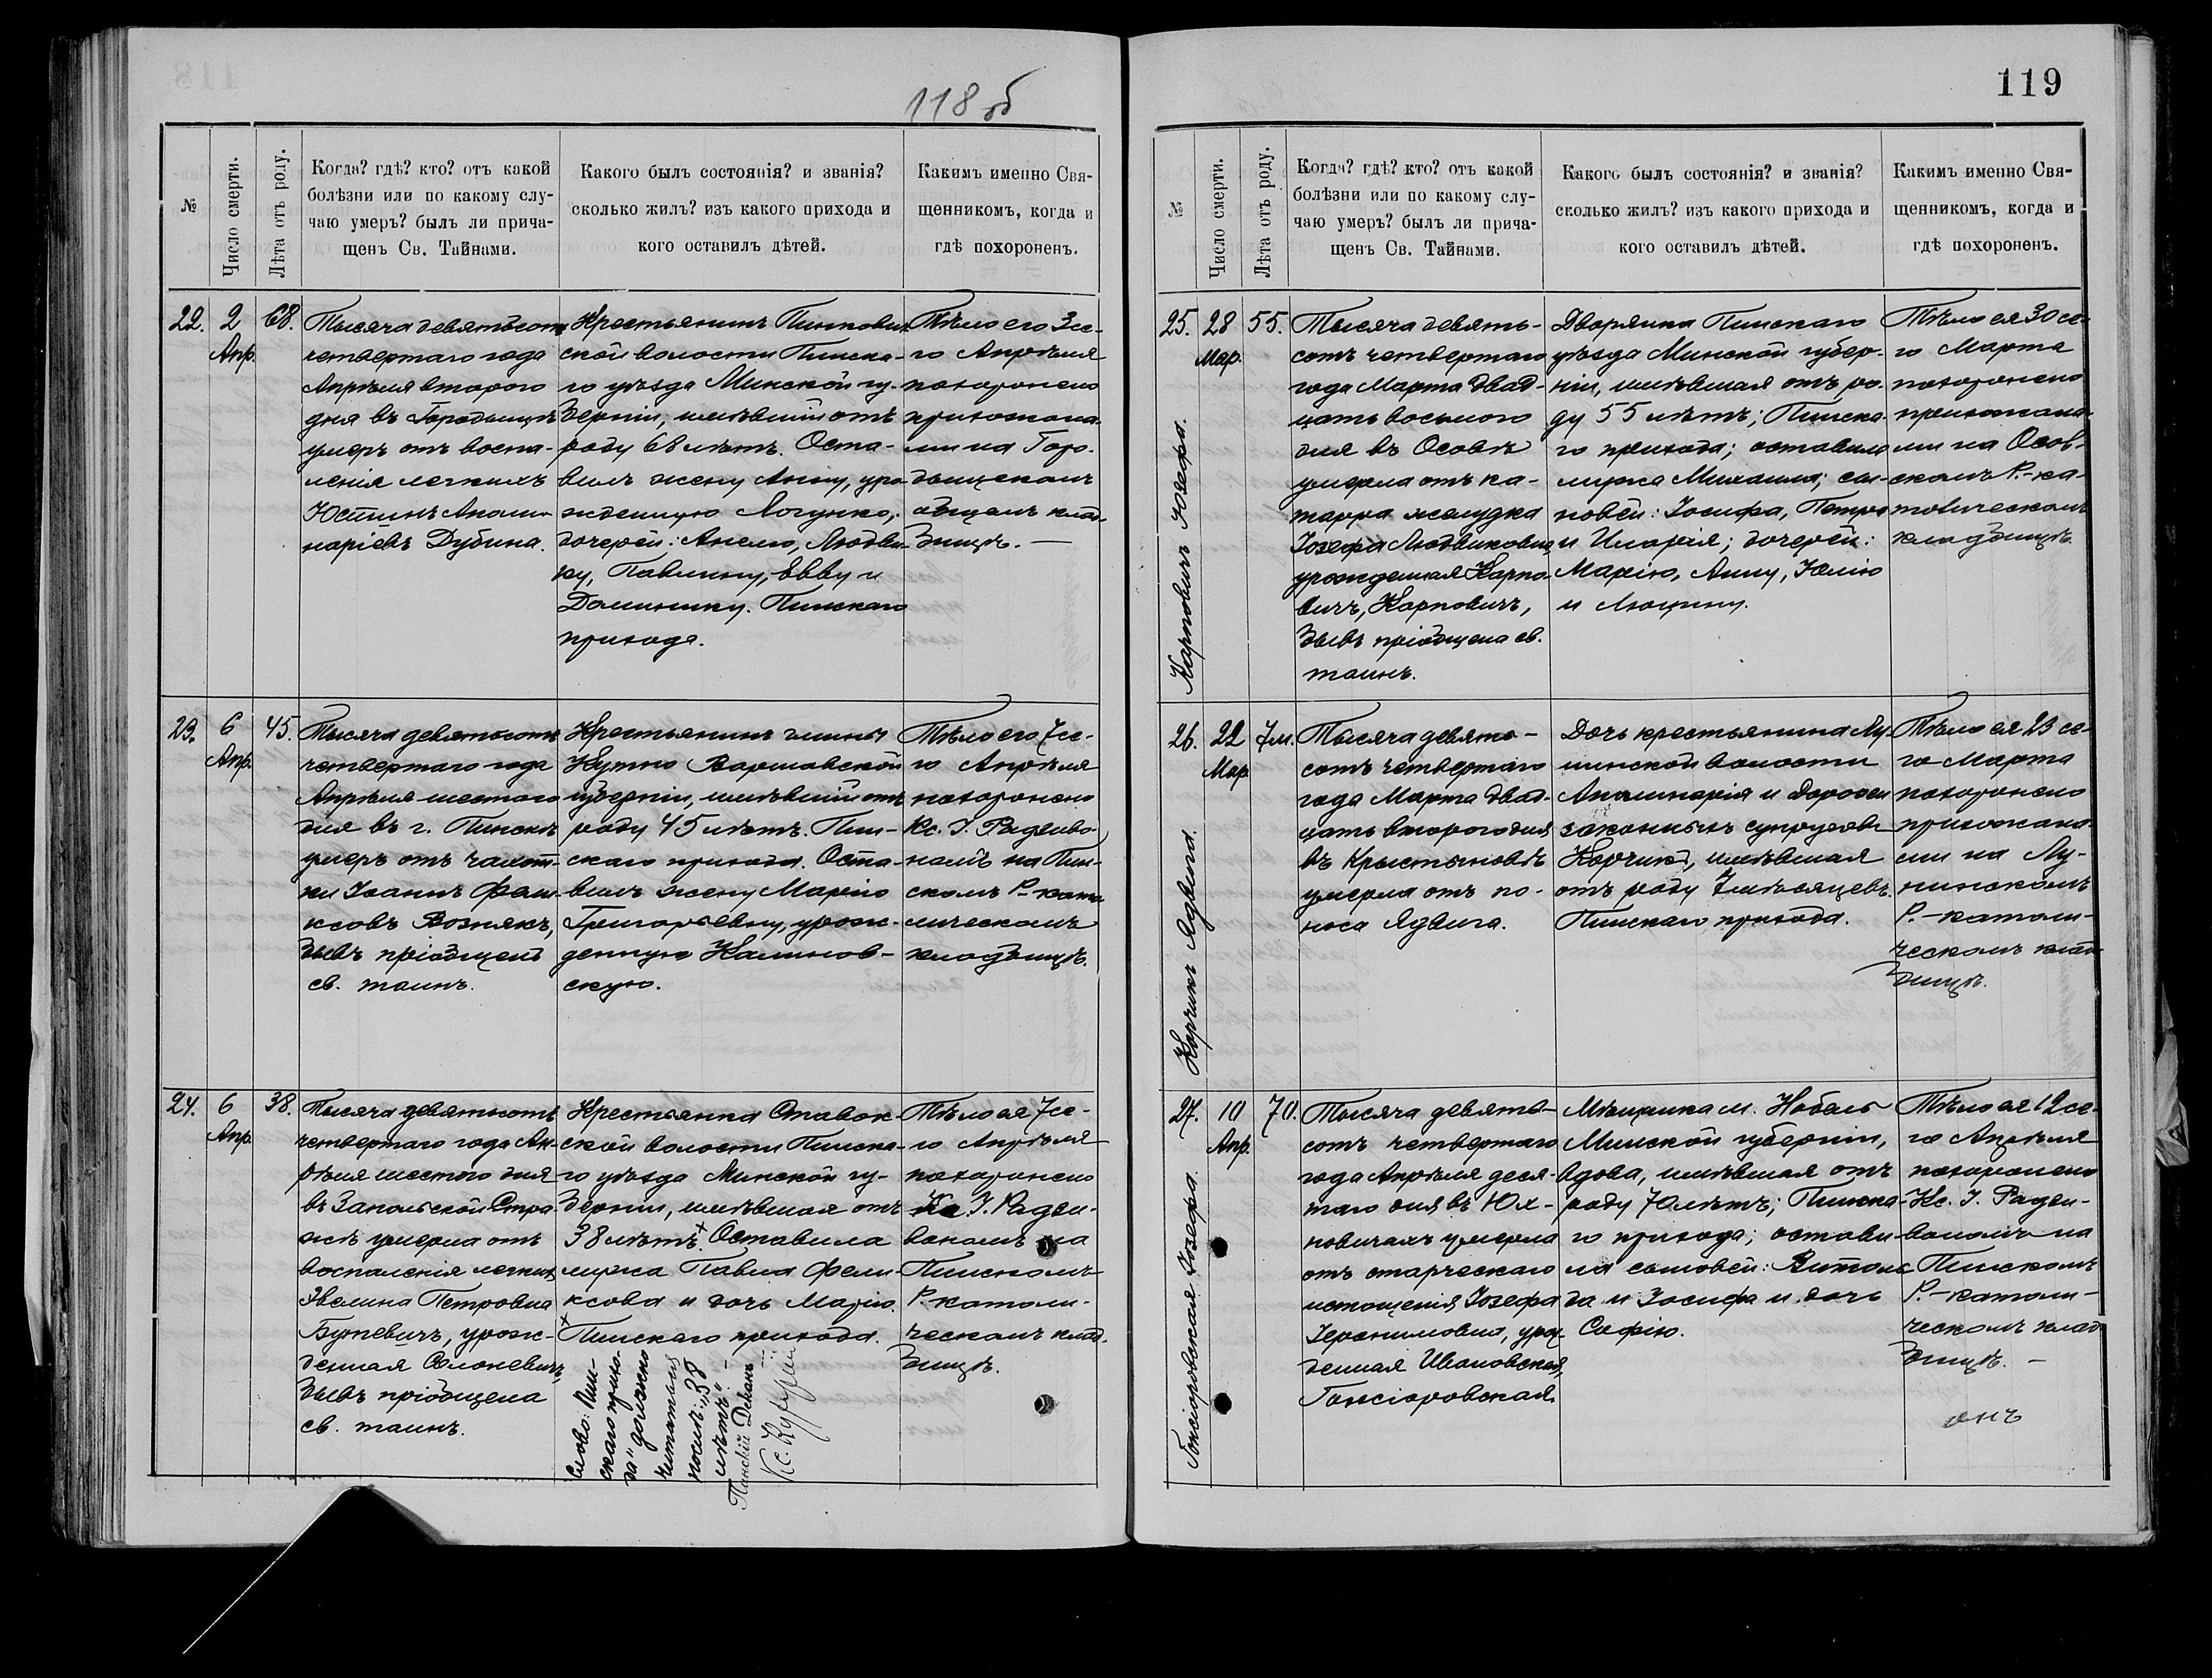 118 об
№
Число смерти.
Лѣта отъ роду.
Когда? гдѣ? кто? отъ какой
болѣзни или по какому слу-
чаю умеръ? былъ ли прича-
щенъ Св. Тайнами.
Какого былъ состоянія? и званія?
сколько жилъ? изъ какого прихода и
кого оставилъ дѣтей.
Какимъ именно Свя-
щенникомъ, когда и
гдѣ похороненъ.
22.
2
Апр.
68.
Тысяча девятьсотъ
четвертаго года
Апрѣля второго
дня въ Городищѣ
умеръ отъ воспа-
ленія легкихъ
Юстинъ Аполи-
наріевъ Дубина.
Крестьянинъ Пинкович-
ской волости Пинска-
го уѣзда Минской гу-
берніи, имѣвшій отъ
роду 68 лѣтъ. Оста-
вилъ жену Анну, уро-
жденную Логунко;
дочерей: Анелю, Людви-
ку, Павлину, Евву и
Доминику. Пинскаго
прихода.
Тѣло его 3 се-
го Апрѣля
похоронено
прихожана-
ми на Горо-
дищскомъ
общемъ клад-
бищѣ. —
23.
6
Апр.
45.
Тысяча девятьсотъ
четвертаго года
Апрѣля шестого
дня въ г. Пинскѣ
умеръ отъ чахот-
ки Іоаннъ Фели-
ксовъ Вознякъ,
бывъ пріобщенъ
св. таинъ.
Крестьянинъ гмины
Кутно Варшавской
губерніи, имѣвшій отъ
роду 45 лѣтъ. Пин-
скаго прихода. Оста-
вилъ жену Марію
Григорьевну, урож-
денную Калинов-
скую.
Тѣло его 7 се-
го Апрѣля
похоронено
Кс. І. Радзиво-
номъ на Пин-
скомъ Р.-като-
лическомъ
кладбищѣ.
24.
6
Апр.
38.
Тысяча девятьсотъ
четвертаго года Ап-
рѣля шестого дня
въ Запольской Стра-
жѣ умерла отъ
воспаленія легкихъ
Эвелина Петровна
Буткевичъ, урож-
денная Солоневичъ,
бывъ пріобщена
св. таинъ.
Крестьянка Ставок-
ской волости Пинска-
го уѣзда Минской гу-
берніи, имѣвшая отъ
38 лѣтъ.+ Оставила
мужа Павла Фели-
ксова и дочь Марію.
+Пинскаго прихода.
Слово: "Пин-
скаго прихо-
да" должно
читаться
послѣ: "38
лѣтъ". –
Пинскій Деканъ
Кс.
Тѣло ее 7 се-
го Апрѣля
похоронено
Кс. І. Радзи-
вономъ на
Пинскомъ
Р.-католи-
ческомъ клад-
бищѣ.
119
№
Число смерти.
Лѣта отъ роду.
Когда? гдѣ? кто? отъ какой
болѣзни или по какому слу-
чаю умеръ? былъ ли прича-
щенъ Св. Тайнами.
Какого былъ состоянія? и званія?
сколько жилъ? изъ какого прихода и
кого оставилъ дѣтей.
Какимъ именно Свя-
щенникомъ, когда и
гдѣ похороненъ.
25.
Карповичъ Юзефа.
28
Мар.
55.
Тысяча девять-
сотъ четвертаго
года Марта двад-
цать восьмого
дня въ Осовѣ
умерла отъ ка-
тарра желудка
Іозефа Людвиковна
урожденная Карпо-
вичъ, Карповичъ,
бывъ пріобщена св.
таинъ.
Дворянка Пинскаго
уѣзда Минской губер-
ніи, имѣвшая отъ ро-
ду 55 лѣтъ; Пинска-
го прихода; оставила
мужа Михаила; сы-
новей: Іосифа, Петра
и Иларія; дочерей:
Марію, Анну, Юлію
и Люцину.
Тѣло ея 30 се-
го Марта
похоронено
прихожана-
ми на Осов-
скомъ Р.-ка-
толическомъ
кладбищѣ.
26.
Корчикъ Ядвига.
22
Мар.
7 м.
Тысяча девять-
сотъ четвертаго
года Марта двад-
цать второго дня
въ Крыстыновѣ
умерла отъ по-
носа Ядвига.
Дочь крестьянина Лу-
нинской волости
Аполинарія и Дорофеи
законныхъ супруговъ
Корчикъ, имѣвшая
отъ роду 7 мѣсяцевъ.
Пинскаго прихода.
Тѣло ея 23 се-
го Марта
похоронено
прихожана-
ми на Лу-
нинскомъ
Р.-католи-
ческомъ клад-
бищѣ.
27.
Гонсіоровская Іозефа.
10
Апр.
70.
Тысяча девять-
сотъ четвертаго
года Апрѣля деся-
таго дня въ Юх-
новичахъ умерла
отъ старческаго
истощенія Іозефа
Іеронимовна, урож-
денная Ивановская,
Гонсіоровская.
Мѣщанка м. Нобель
Минской губерніи,
вдова, имѣвшая отъ
роду 70 лѣтъ; Пинска-
го прихода; остави-
ла сыновей: Витоль-
да и Іосифа и дочь
Софію.
Тѣло ее 12 се-
го Апрѣля
похоронено
Кс. І. Радзи-
вономъ на
Пинскомъ
Р.-католи-
ческомъ клад-
бищѣ. —